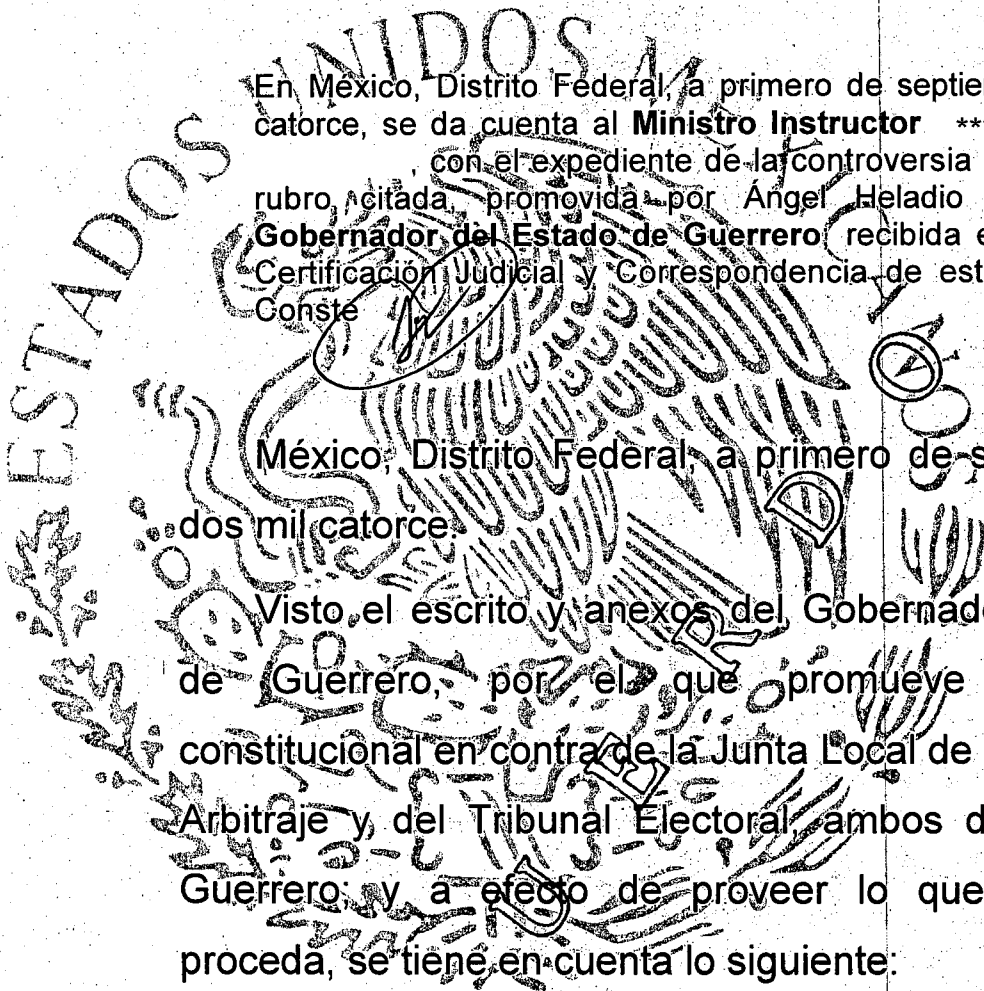 ESTADOS UNIDOS MEXICANOS
En México, Distrito Federal, a primero de septie
catorce, se da cuenta al Ministro Instructor **
, con el expediente de la controversia
rubro citada, promovida por Ángel Heladio
Gobernador del Estado de Guerrero, recibida e
Certificación Judicial y Correspondencia de est
Conste
México, Distrito Federal, a primero de s
dos mil catorce.
Visto el escrito y anexos del Gobernad
de Guerrero, por el que promueve
constitucional en contra de la Junta Local de
Arbitraje y del Tribunal Electoral, ambos d
Guerrero; y a efecto de proveer lo que
proceda, se tiene en cuenta lo siguiente:
UERDO